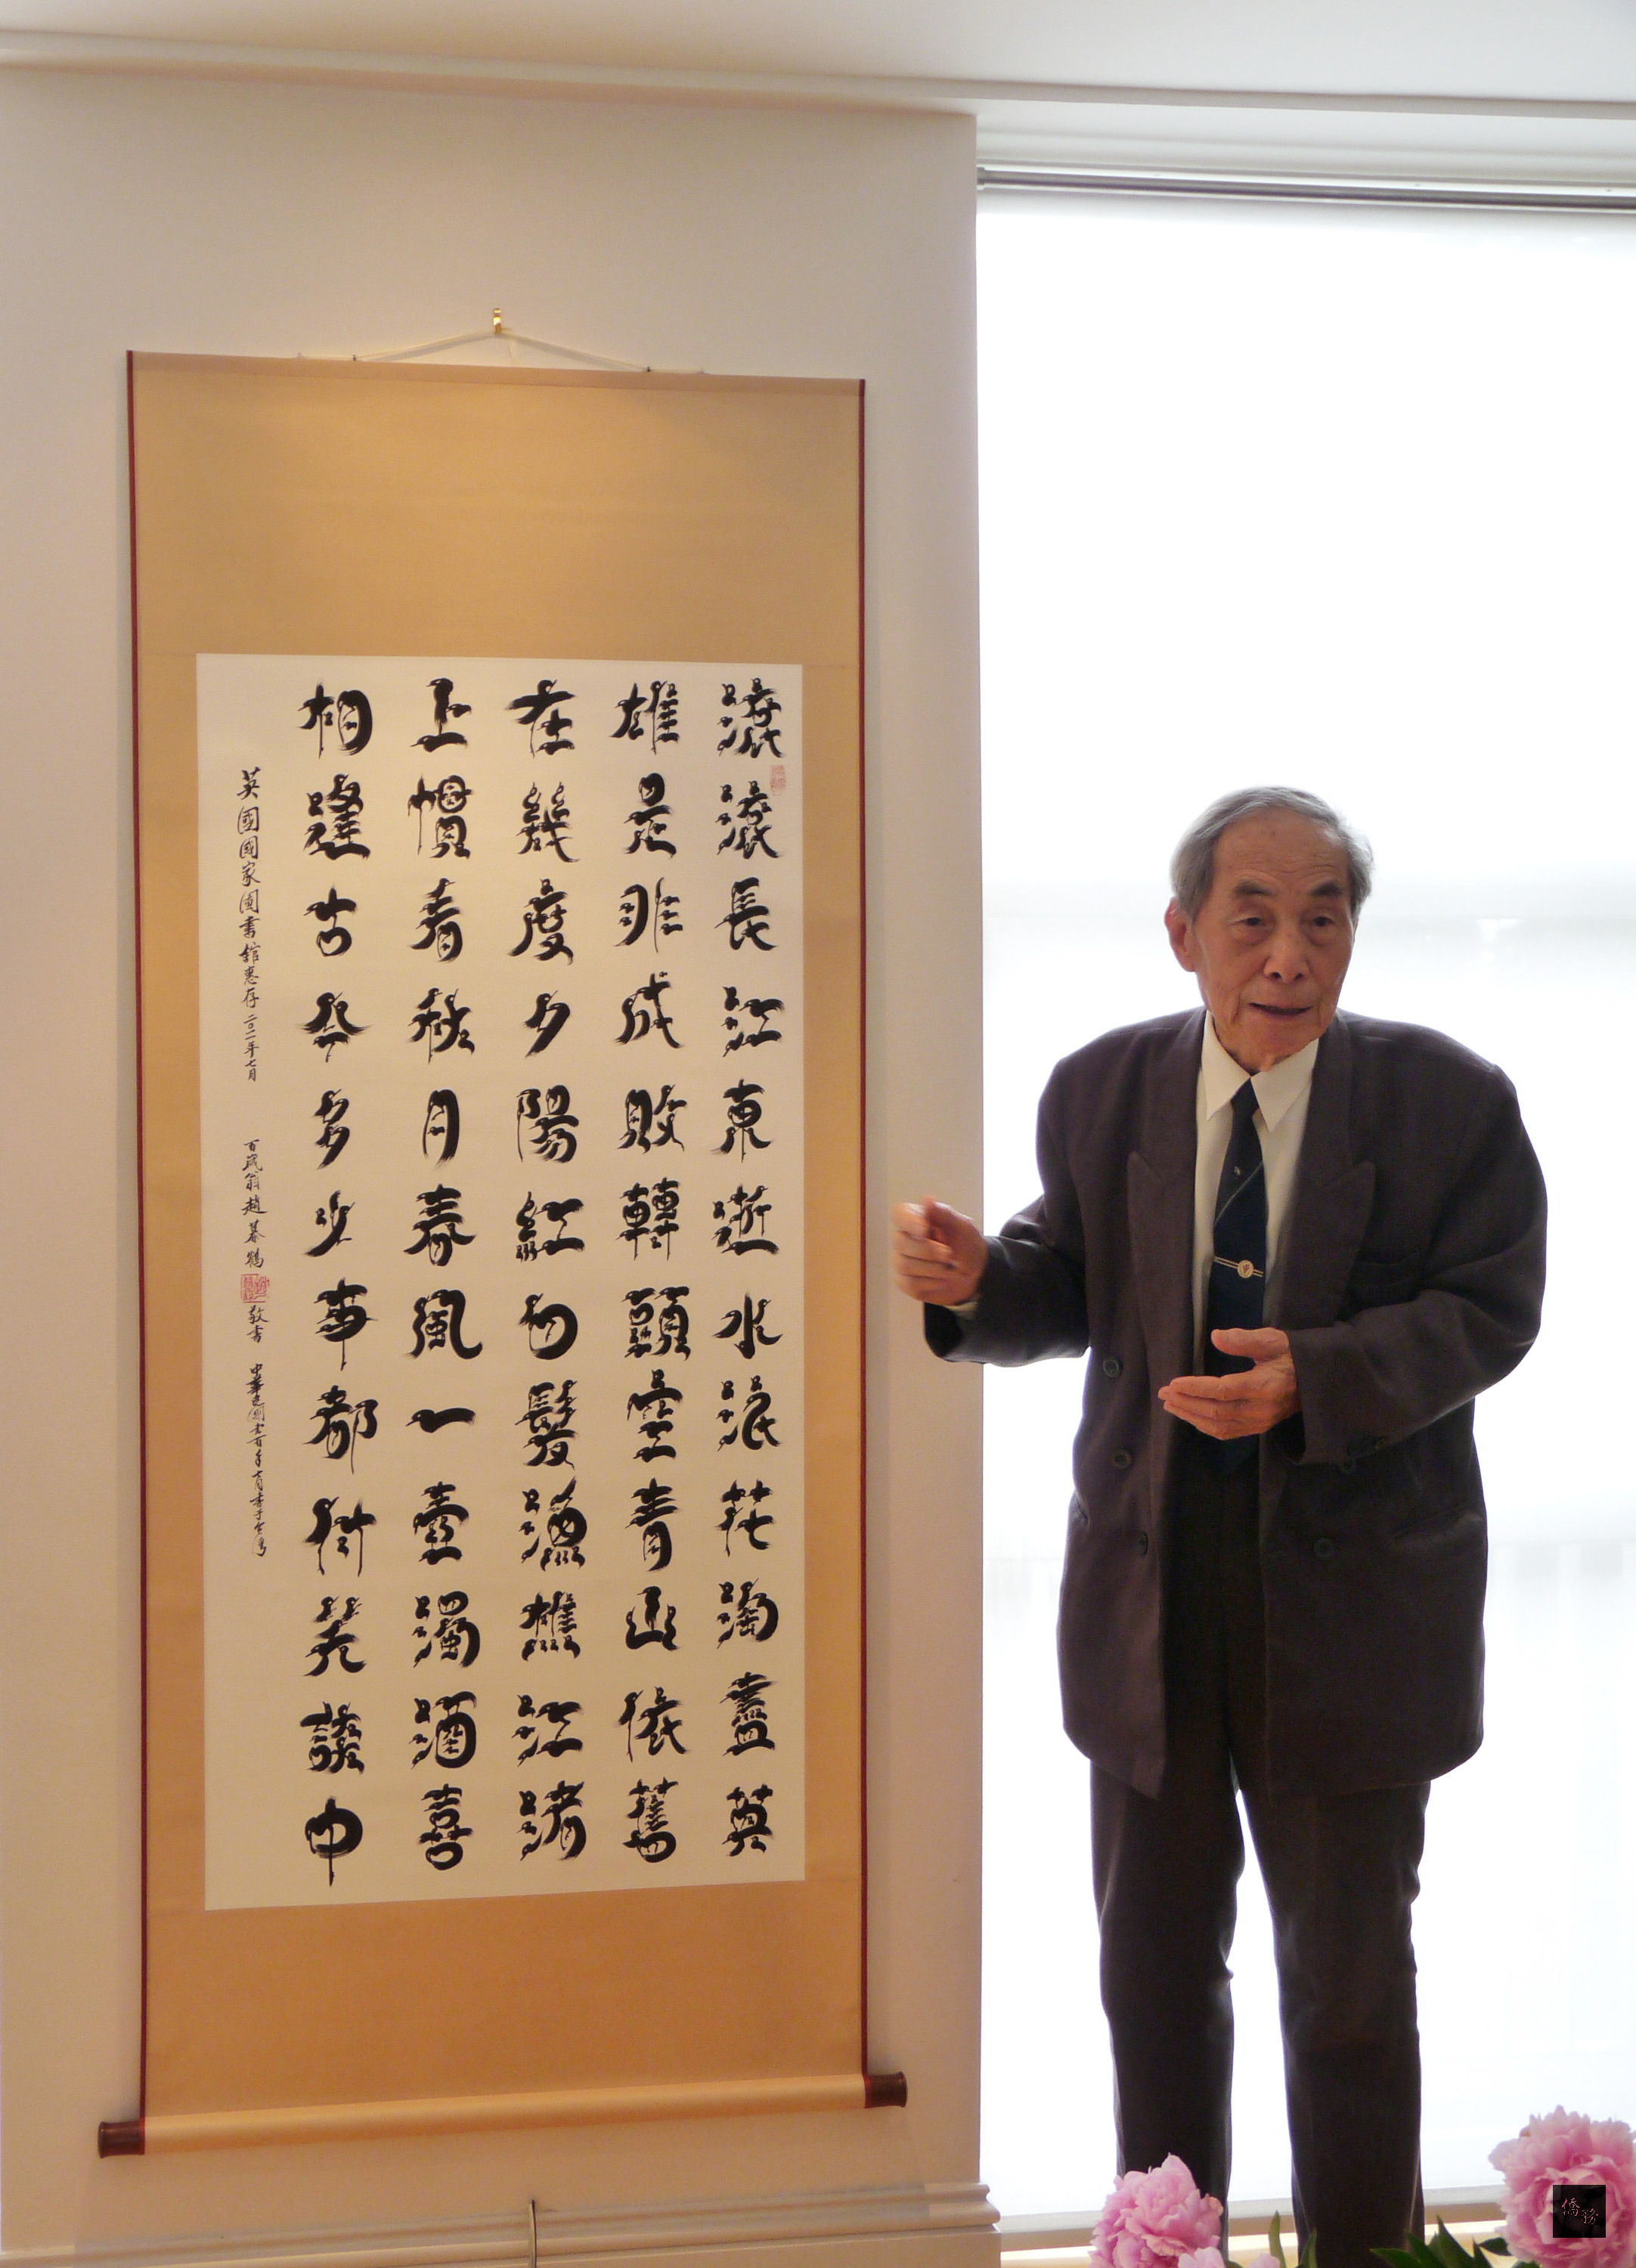 滾滾長江東逝水浪花淘盡英
雄是非成敗轉頭空青山依舊
在幾度夕陽紅白髮漁樵江渚
上慣看秋月春風一壺濁酒喜
相逢古今多少事都付笑談中
英國國家圖書館惠存 二〇一一年七月 百歲翁趙慕鶴 敬書 中華民國壹百年七月書于台灣
僑務